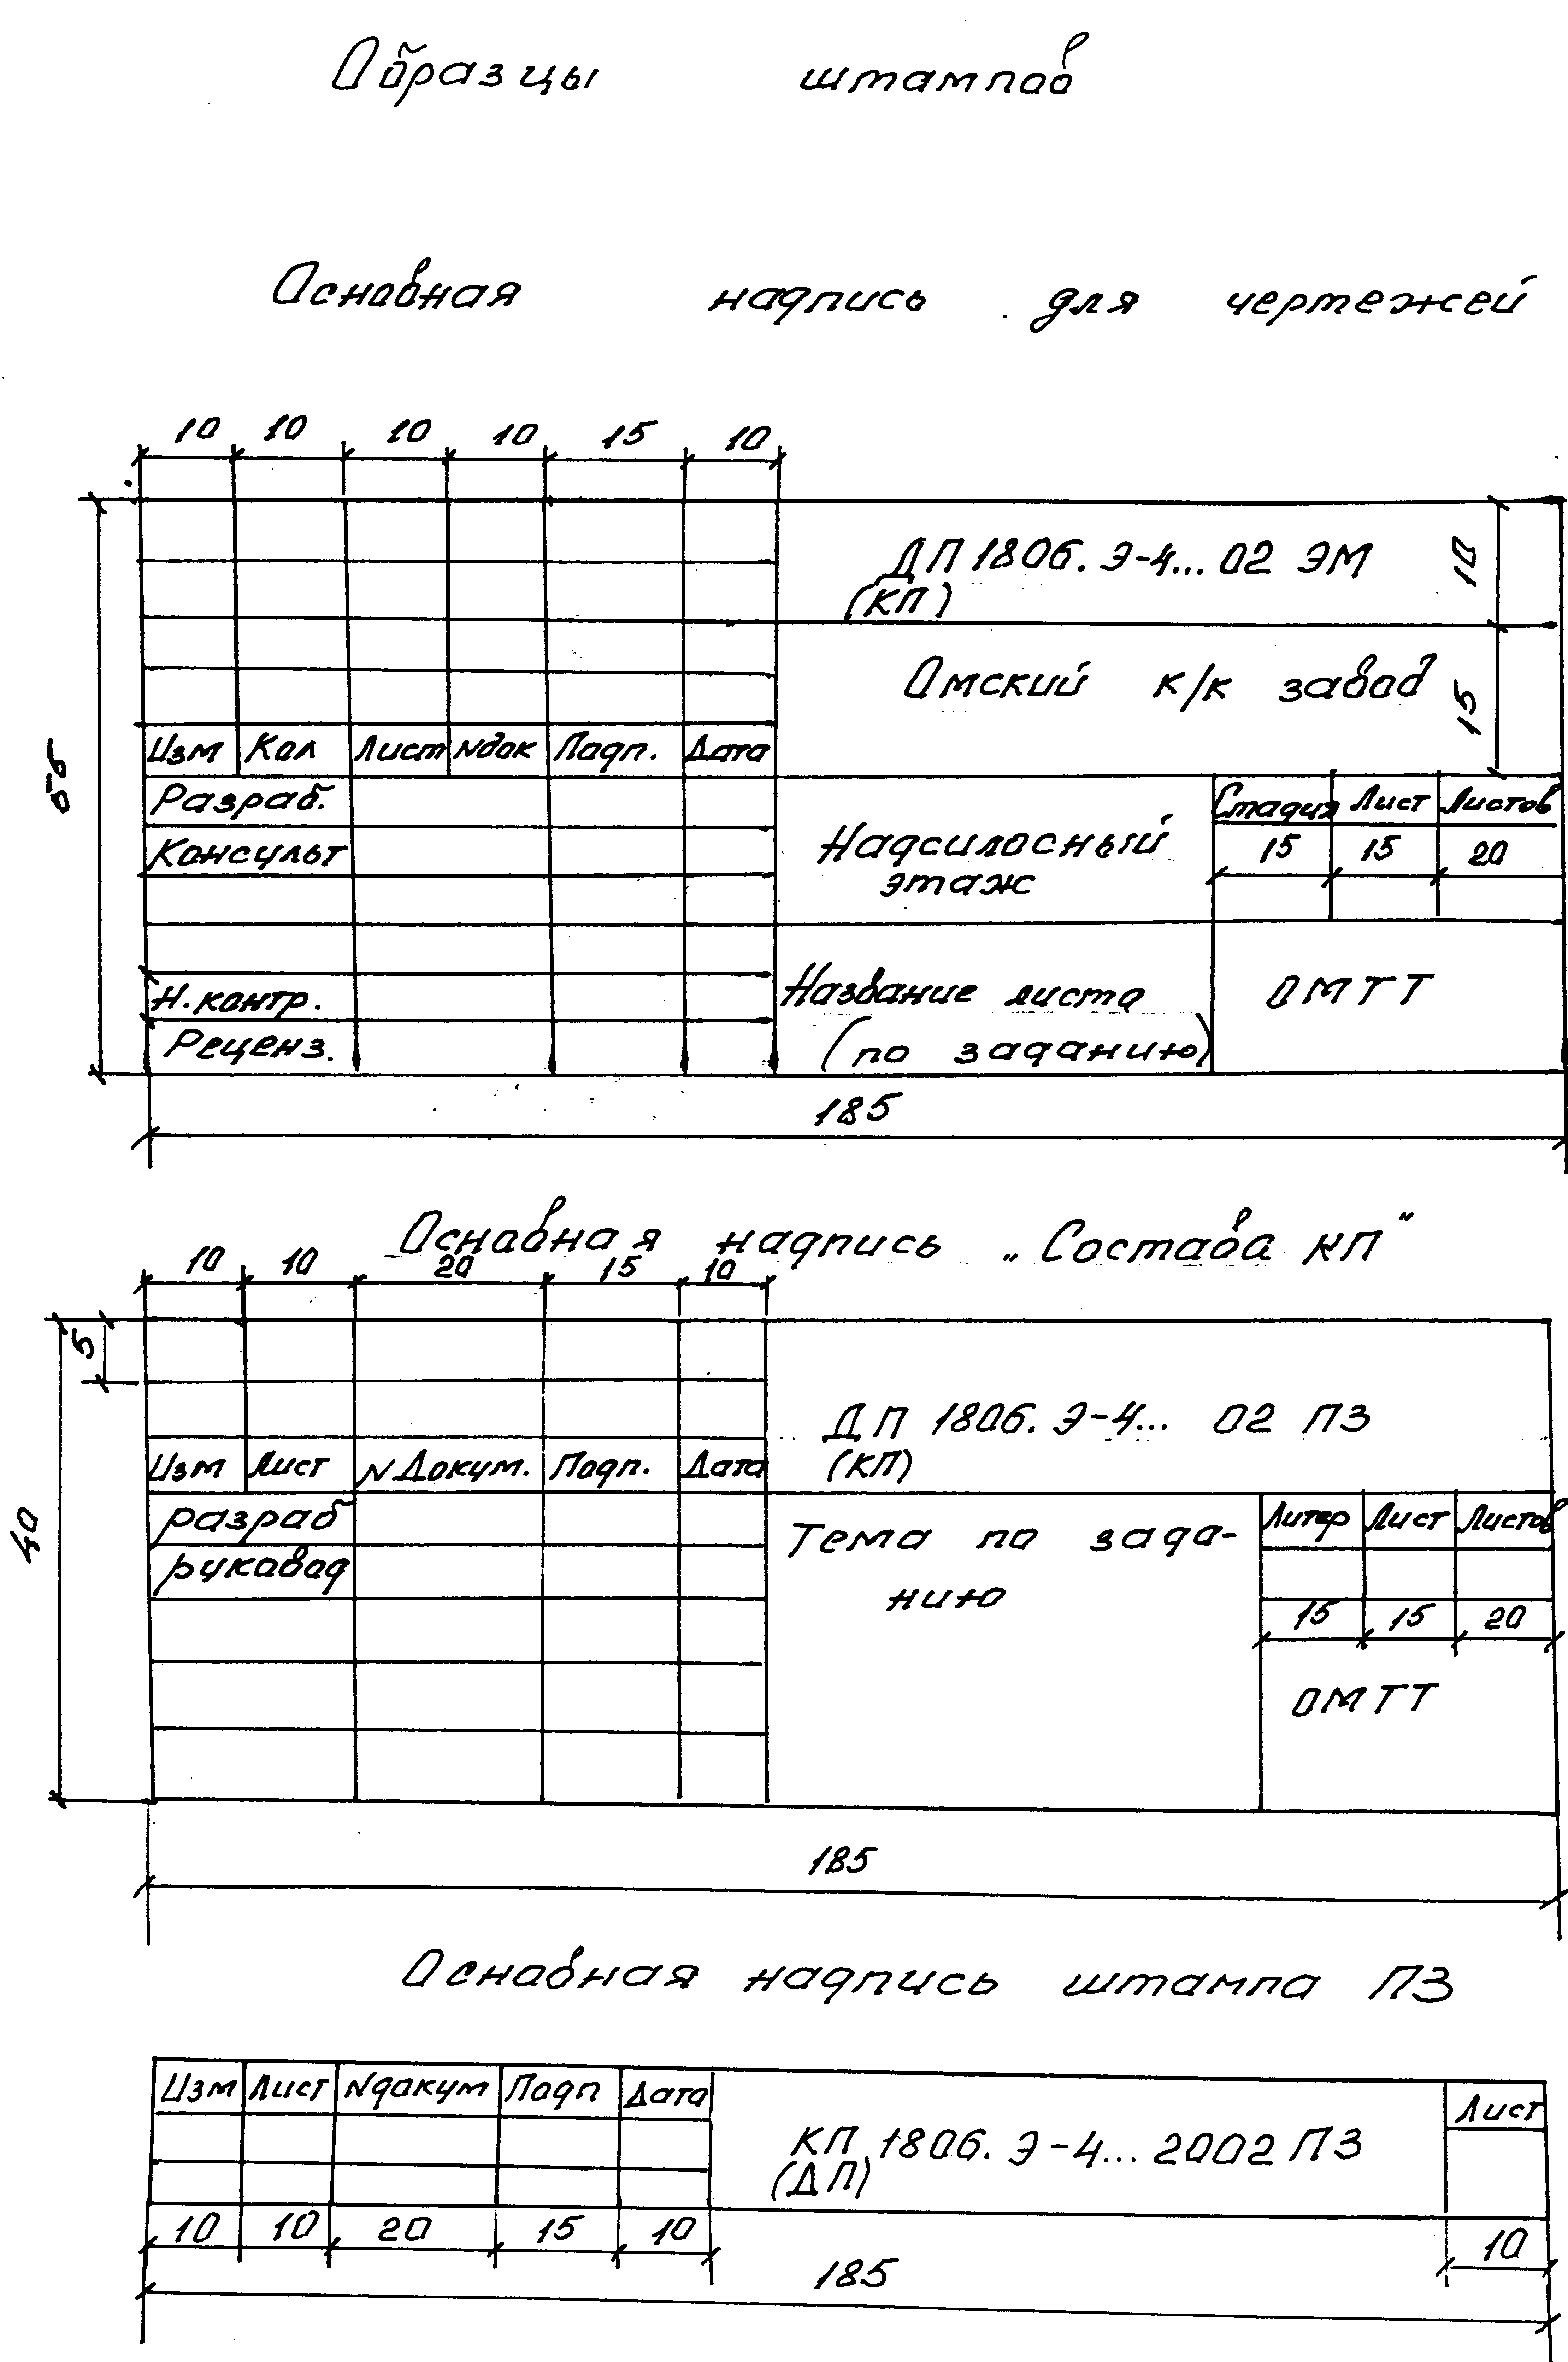 Образцы штампов
Основная надпись для чертежей
10 10 10 10 15 10
ДП 1806. Э-4... 02 ЭМ
(КП)
10
Омский к/к завод
15
55
Изм Кол Лист Nдок Подп. Дата
Разраб.
Консульт
Надсилосный
этаж
Стадия Лист Листов
15 15 20
Н. контр.
Реценз.
Название листа
(по заданию)
ОМТТ
185
Основная надпись „Состава КП"
10 10 20 15 10
5
40
ДП 1806. Э-4... 02 ПЗ
(КП)
Изм Лист N Докум. Подп. Дата
разраб
руковод
Тема по зада-
нию
Литер Лист Листов
15 15 20
ОМТТ
185
Основная надпись штампа ПЗ
Изм Лист Nдокум Подп Дата
КП 1806. Э-4... 2002 ПЗ
(ДП)
Лист
10 10 20 15 10
10
185